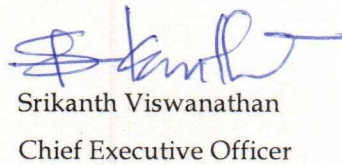 Srikanth
Srikanth Viswanathan
Chief Executive Officer